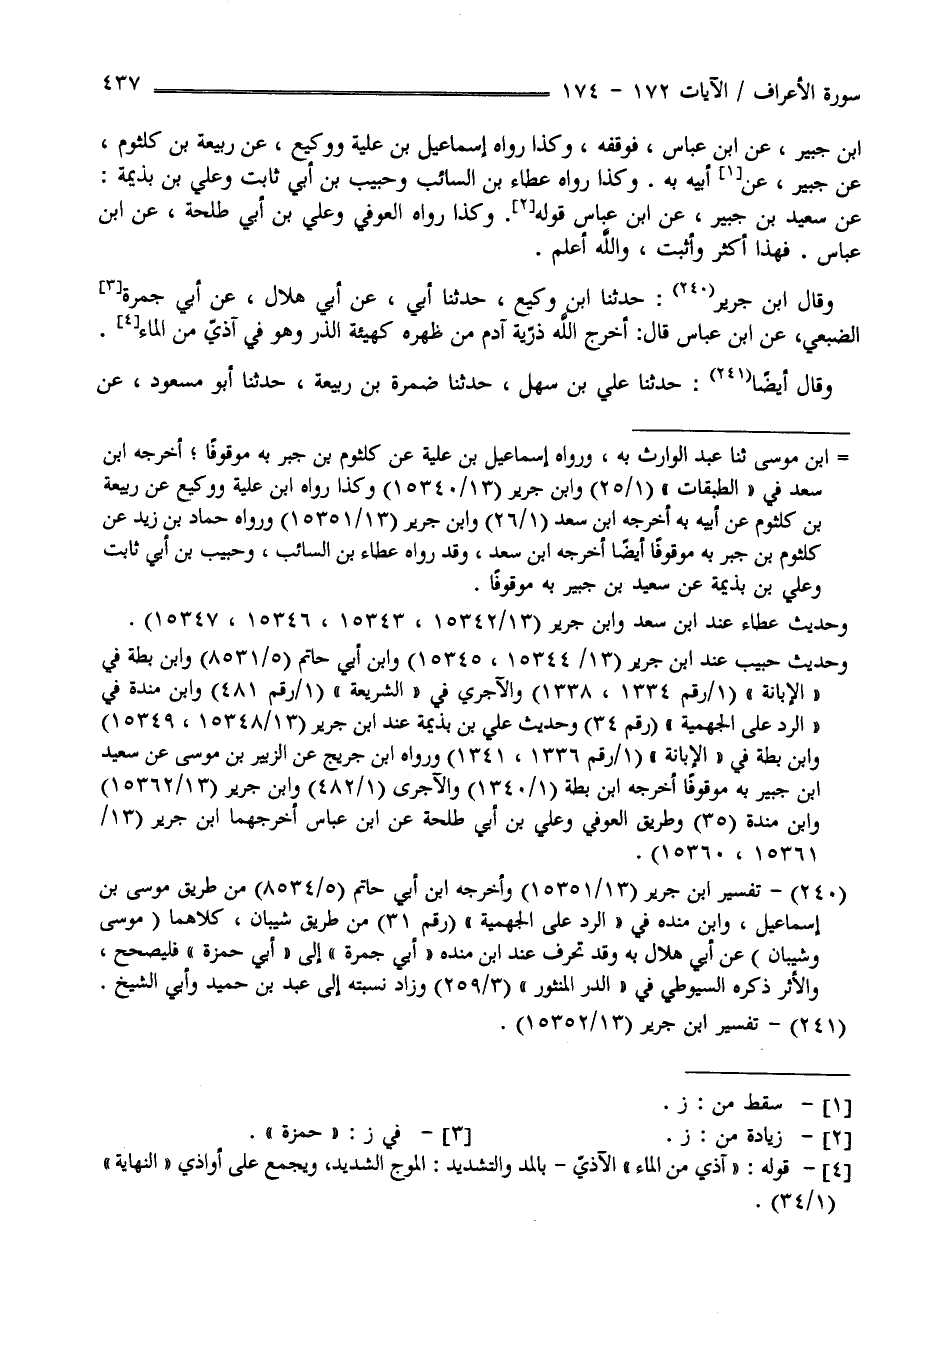 سورة الأعراف / الآيات ١٧٢ - ١٧٤ ٤٣٧
ابن جبير ، عن ابن عباس ، فوقفه ، وكذا رواه إسماعيل بن علية ووكيع ، عن ربيعة بن كلثوم ،
عن جبير ، عن[١] أبيه به . وكذا رواه عطاء بن السائب وحبيب بن أبي ثابت وعلي بن بذيمة :
عن سعيد بن جبير ، عن ابن عباس قوله[٢]. وكذا رواه العوفي وعلي بن أبي طلحة ، عن ابن
عباس . فهذا أكثر وأثبت ، واللَّه أعلم .
وقال ابن جرير(٢٤٠) : حدثنا ابن وكيع ، حدثنا أبي ، عن أبي هلال ، عن أبي جمرة[٣]
الضبعي، عن ابن عباس قال: أخرج اللَّه ذرّية آدم من ظهره كهيئة الذر وهو في آذيّ من الماء[٤] .
وقال أيضًا(٢٤١) : حدثنا علي بن سهل ، حدثنا ضمرة بن ربيعة ، حدثنا أبو مسعود ، عن
= ابن موسى ثنا عبد الوارث به ، ورواه إسماعيل بن علية عن كلثوم بن جبر به موقوفًا ؛ أخرجه ابن
سعد في « الطبقات » (٢٥/١) وابن جرير (١٥٣٤٠/١٣) وكذا رواه ابن علية ووكيع عن ربيعة
بن كلثوم عن أبيه به أخرجه ابن سعد (٢٦/١) وابن جرير (١٥٣٥١/١٣) ورواه حماد بن زيد عن
كلثوم بن جبر به موقوفًا أيضًا أخرجه ابن سعد ، وقد رواه عطاء بن السائب ، وحبيب بن أبي ثابت
وعلي بن بذيمة عن سعيد بن جبير به موقوفًا .
وحديث عطاء عند ابن سعد وابن جرير (١٥٣٤٢/١٣ ، ١٥٣٤٣ ، ١٥٣٤٦ ، ١٥٣٤٧) .
وحديث حبيب عند ابن جرير (١٣/ ١٥٣٤٤ ، ١٥٣٤٥) وابن أبي حاتم (٨٥٣١/٥) وابن بطة في
« الإبانة » (١/رقم ١٣٣٤ ، ١٣٣٨) والآجري في « الشريعة » (١/رقم ٤٨١) وابن مندة في
« الرد على الجهمية » (رقم ٣٤) وحديث علي بن بذيمة عند ابن جرير (١٥٣٤٨/١٣ ، ١٥٣٤٩)
وابن بطة في « الإبانة » (١/رقم ١٣٣٦ ، ١٣٤١) ورواه ابن جريج عن الزبير بن موسى عن سعيد
ابن جبير به موقوفًا أخرجه ابن بطة (١٣٤٠/١) والآجرى (٤٨٢/١) وابن جرير (١٥٣٦٢/١٣)
وابن مندة (٣٥) وطريق العوفي وعلي بن أبي طلحة عن ابن عباس أخرجهما ابن جرير (١٣/
١٥٣٦١ ، ١٥٣٦٠) .
(٢٤٠) - تفسير ابن جرير (١٥٣٥١/١٣) وأخرجه ابن أبي حاتم (٨٥٣٤/٥) من طريق موسى بن
إسماعيل ، وابن منده في « الرد على الجهمية » (رقم ٣١) من طريق شيبان ، كلاهما ( موسى
وشيبان ) عن أبي هلال به وقد تحرف عند ابن منده « أبي جمرة » إلى « أبي حمزة » فليصحح ،
والأثر ذكره السيوطي في « الدر المنثور » (٢٥٩/٣) وزاد نسبته إلى عبد بن حميد وأبي الشيخ .
(٢٤١) - تفسير ابن جرير (١٥٣٥٢/١٣) .
[١] - سقط من : ز .
[٢] - زيادة من : ز . [٣] - في ز : « حمزة » .
[٤] - قوله : « آذي من الماء » الآذيّ - بالمد والتشديد : الموج الشديد، ويجمع على أواذي « النهاية »
(٣٤/١) .